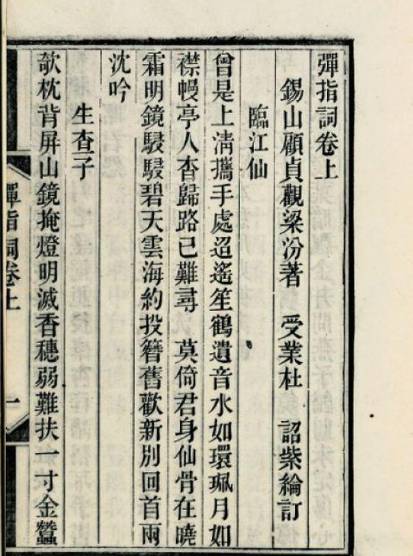 彈指詞卷上
錫山顧貞觀梁汾著 受業杜 詔紫綸訂
臨江仙
曾是上淸攜手處迢遙笙鶴遺音水如環珮月如
襟幔亭人杳歸路已難尋 莫倚君身仙骨在曉
霜明鏡駸駸碧天雲海約投簪舊歡新別回首兩
沈吟
生查子
欹枕背屏山鏡掩燈明滅香穗弱難扶一寸金蠶
彈指詞卷上
一